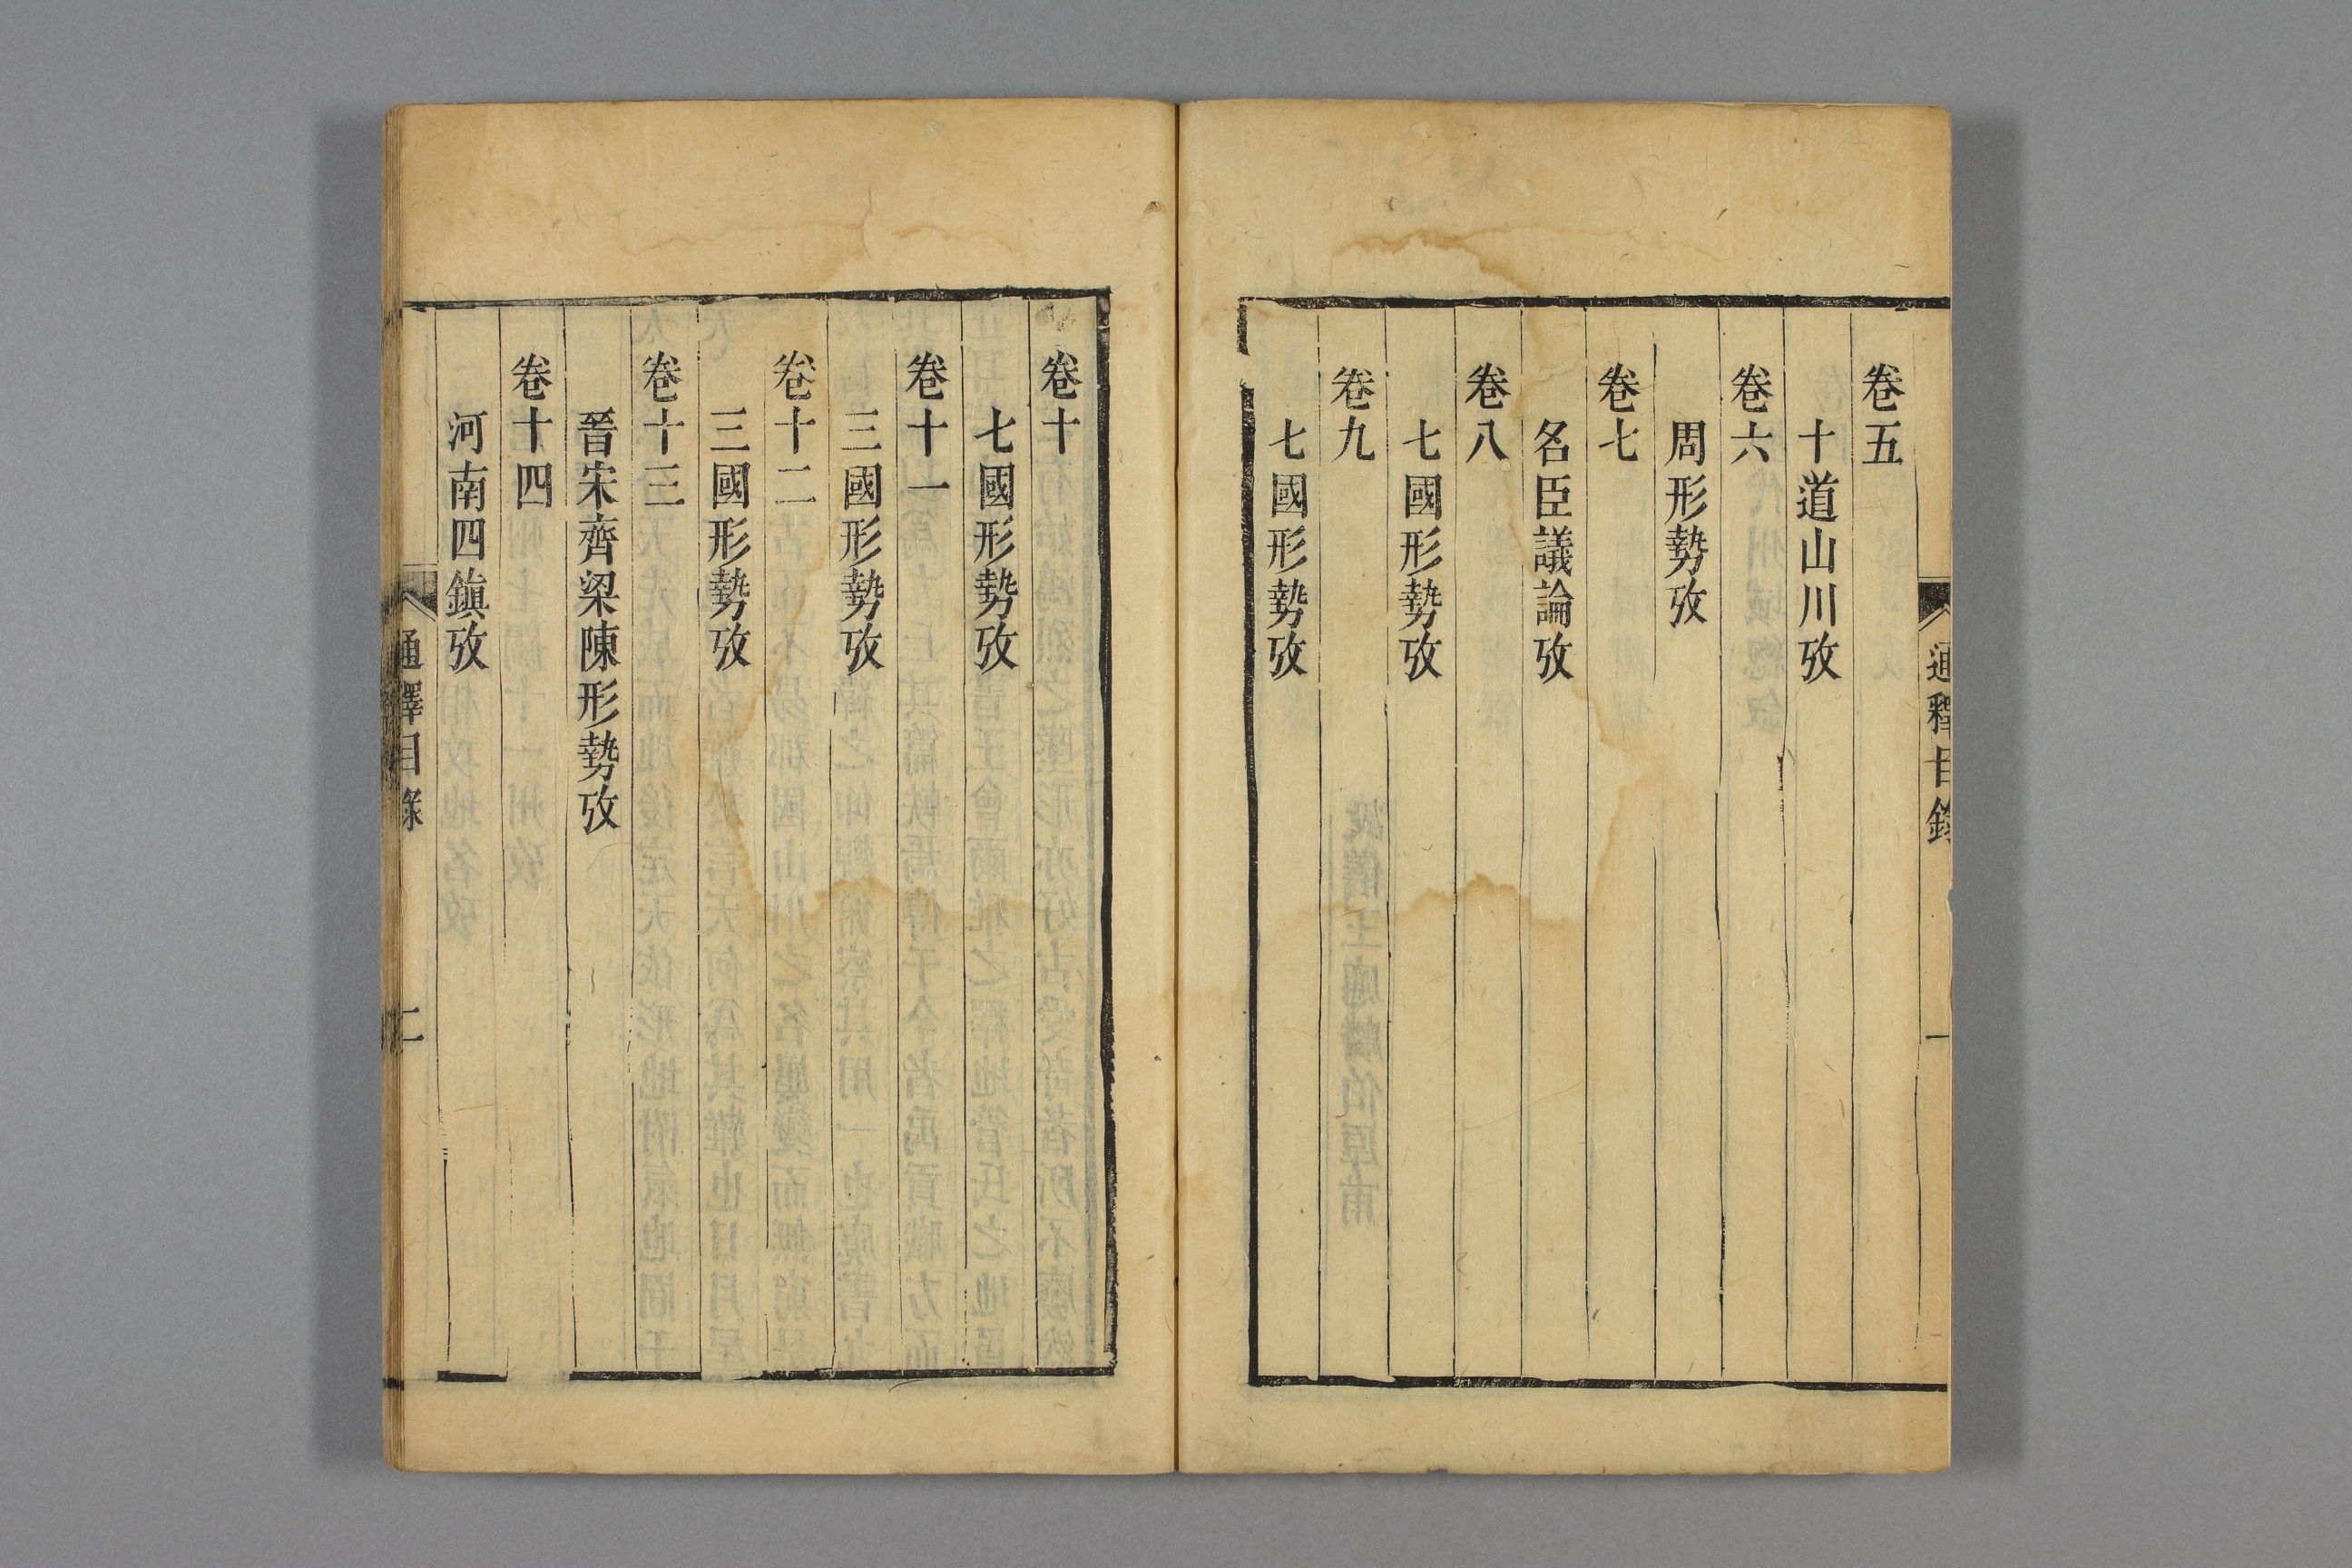 通釋目錄 一
卷五
十道山川攷
卷六
周形勢攷
卷七
名臣議論攷
卷八
七國形勢攷
卷九
七國形勢攷
卷十
七國形勢攷
卷十一
三國形勢攷
卷十二
三國形勢攷
卷十三
晉宋齊梁陳形勢攷
卷十四
河南四鎮攷
通釋目錄 二